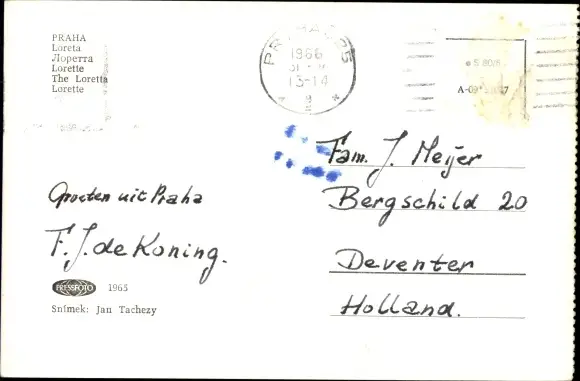 PRAHA
Loreta
Лоретта
Lorette
The Loretta
Lorette
1966
13-14
Fam. J. Meijer
Bergschild 20
Deventer
Holland.
Groeten uit Praha
F. J. de Koning.
PRESSFOTO 1965
Snímek: Jan Tachezy